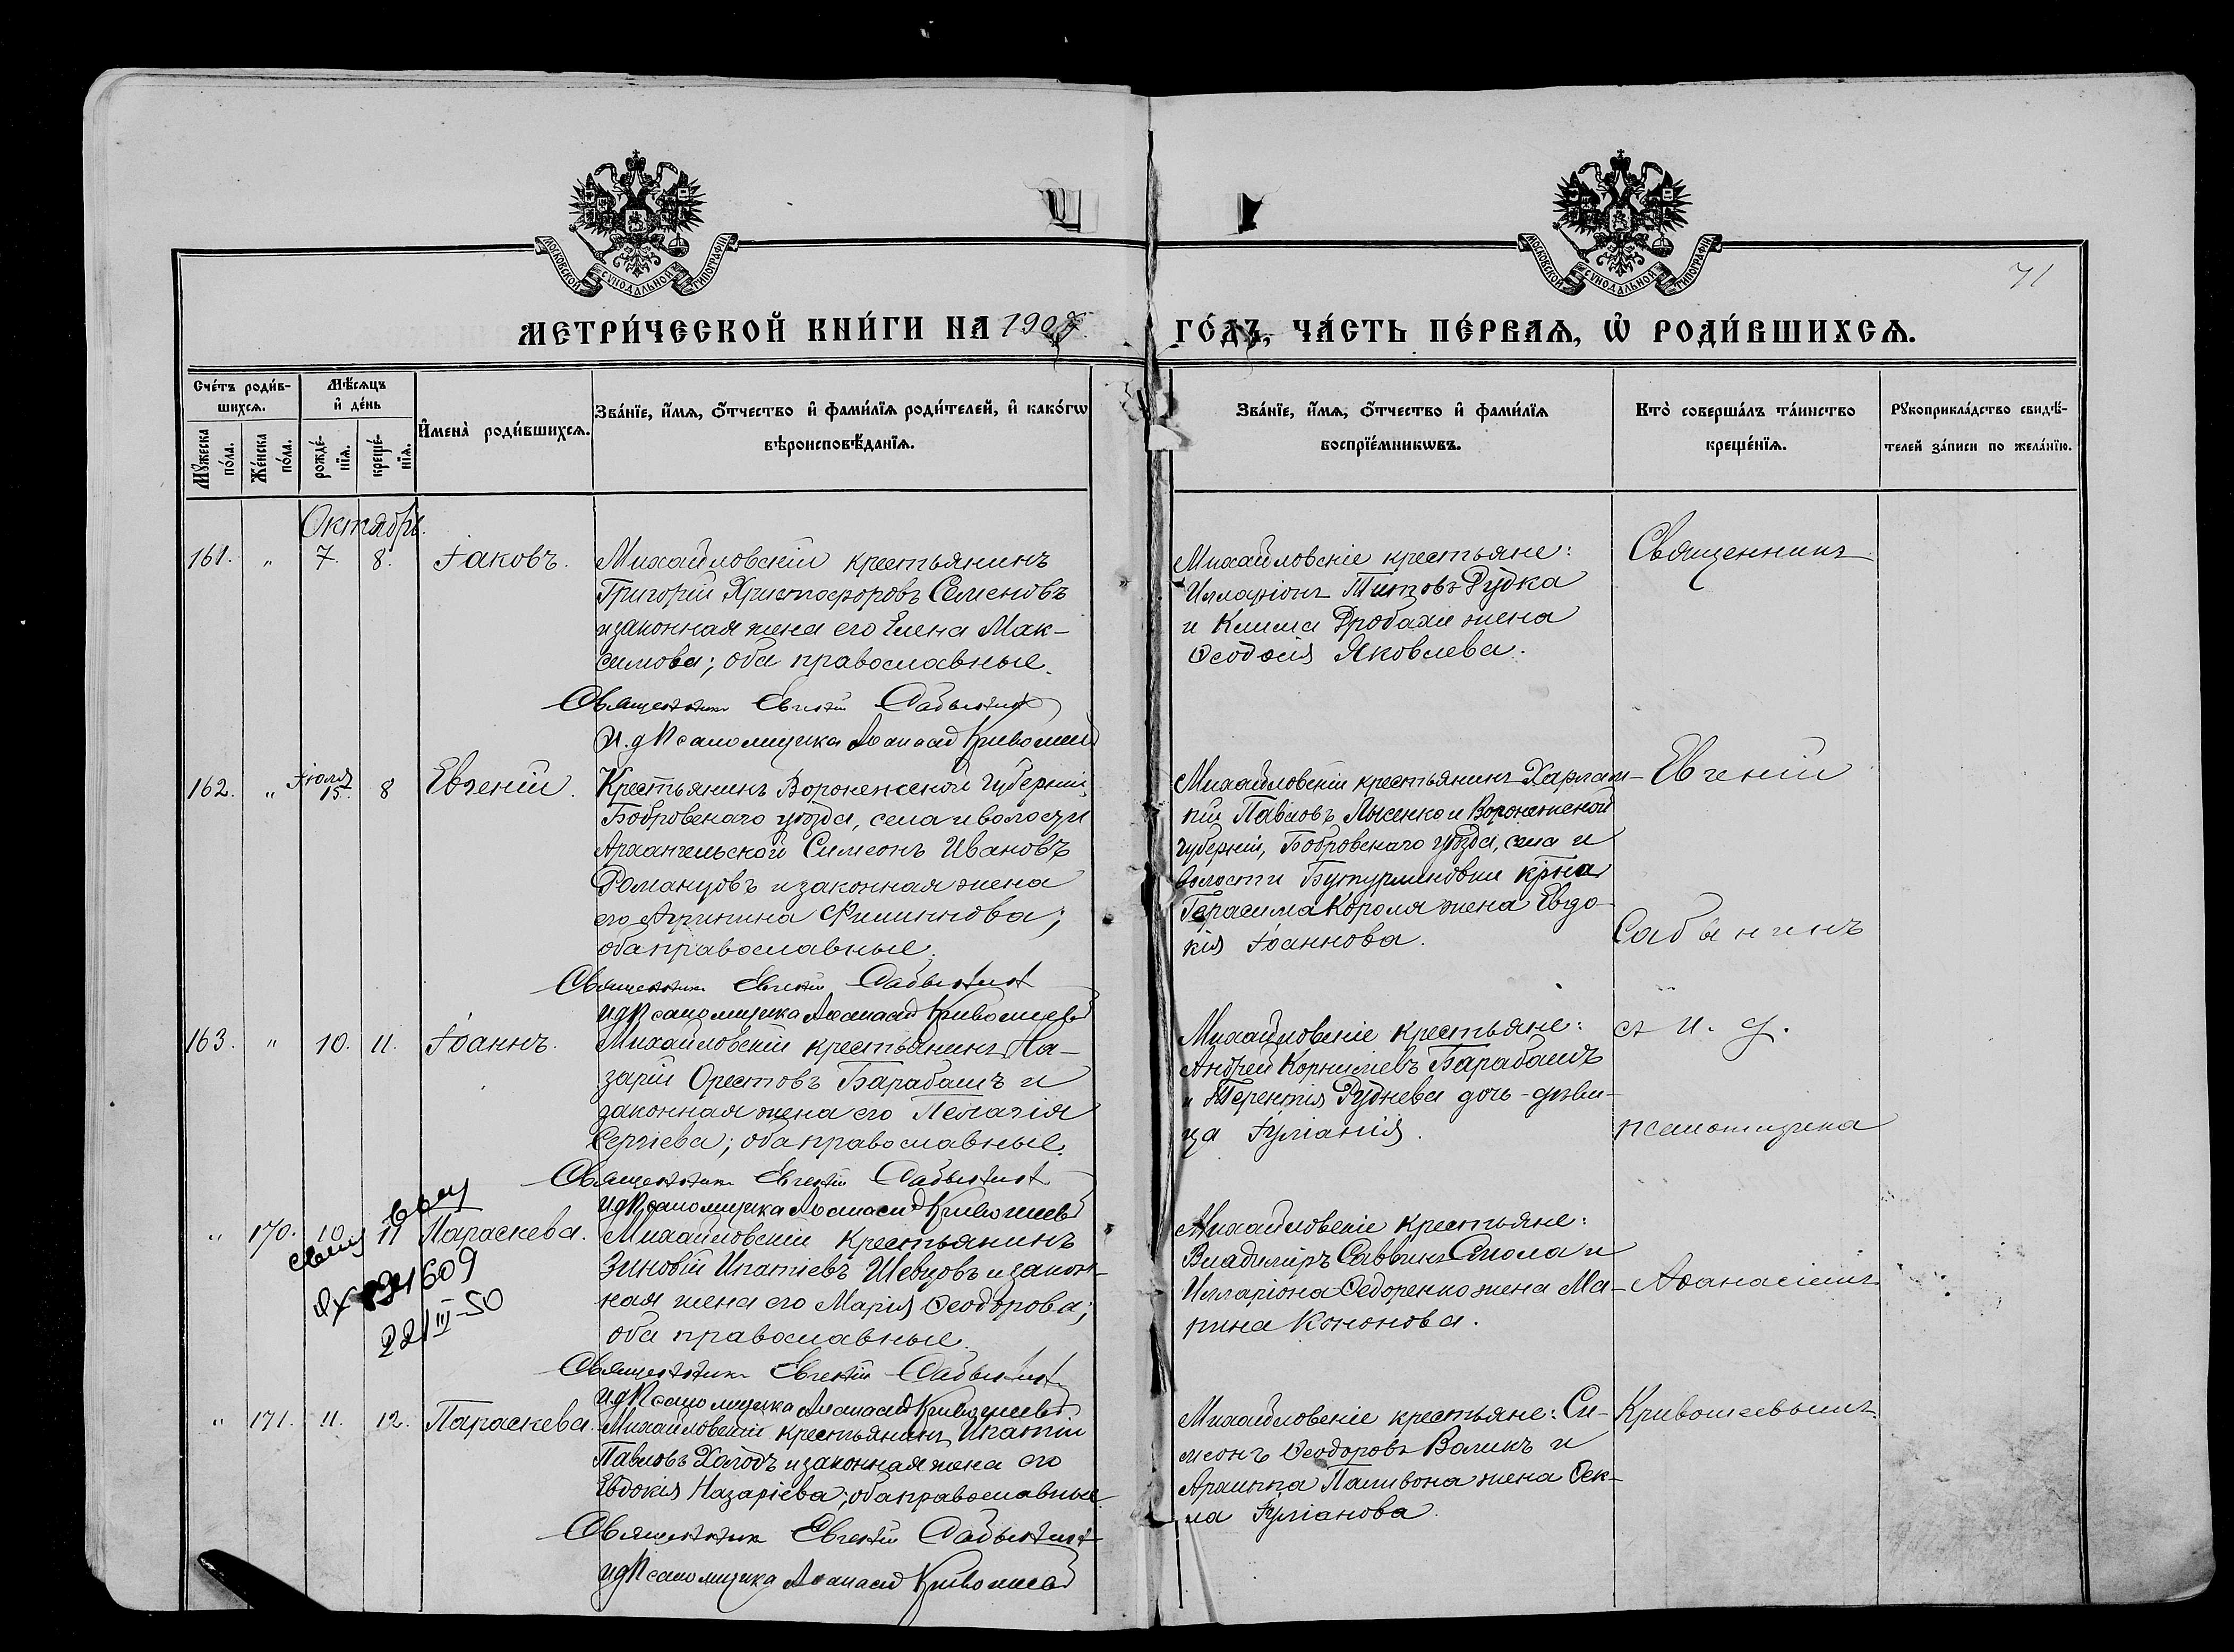 МОСКОВСКОЙ СѴНОДАЛЬНОЙ ТИПОГРАФІИ
МОСКОВСКОЙ СѴНОДАЛЬНОЙ ТИПОГРАФІИ
71
МЕТРИ́ЧЕСКОЙ КНИ́ГИ НА 190
ГО́ДЪ, ЧА́СТЬ ПЕ́РВАѦ, Ѡ҆ РОДИ́ВШИХСѦ.
Сче́тъ роди́в-
шихсѧ.
Мѣ́сѧцъ
и҆ де́нь
Мꙋ́жеска
по́ла.
Же́нска
по́ла.
рожде́-
нїѧ.
креще́-
нїѧ.
И҆мена̀ роди́вшихсѧ.
Зва́нїе, и҆́мѧ, ѻ҆́тчество и҆ фами́лїѧ роди́телей, и҆ како́гѡ
вѣроисповѣ́данїѧ.
Зва́нїе, и҆́мѧ, ѻ҆́тчество и҆ фами́лїѧ
воспрїе́мникѡвъ.
Кто̀ соверша́лъ та́инство
креще́нїѧ.
Рꙋкоприкла́дство свидѣ́-
телей за́писи по жела́нїю.
Октябрь.
161. " 7. 8. Іаковъ.
Михайловскій крестьянинъ
Григорій Христофоровъ Семеновъ
и законная жена его Елена Мак-
симова; оба православные.
Священникъ Евгеній Сабынинъ
И. д. Псаломщика Аѳанасій Кривошеев
Михайловскіе крестьяне:
Илларіонъ Титовъ Рудка
и Клима Дробахи жена
Ѳеодосія Яковлева.
Священникъ
162. " Іюля 15. 8 Евгеній.
Крестьянинъ Воронежской губерніи,
Бобровскаго уѣзда, села и волости
Архангельской Симеонъ Ивановъ
Романцовъ и законная жена
его Агрипина Филиппова;
оба православные.
Священникъ Евгеній Сабынинъ
И. д. Псаломщика Аѳанасій Кривошеев
Михайловскій крестьянинъ Харлам-
пій Павловъ Лысенко и Воронежской
губерніи, Бобровскаго уѣзда, села и
волости Бутурлиновки кр-на
Герасима Короля жена Евдо-
кія Іоаннова.
Евгеній
Сабынинъ
163. " 10. 11. Іоаннъ.
Михайловскій крестьянинъ На-
зарій Орестовъ Барабашъ и
законная жена его Пелагія
Сергіева; оба православные.
Священникъ Евгеній Сабынинъ
И. д. Псаломщика Аѳанасій Кривошеев
Михайловскіе крестьяне:
Андрей Корниліевъ Барабашъ
и Терентія Руднева дочь-дѣви-
ца Іуліанія.
съ и. д.
псаломщика
" 170. 10. 11 Параскева.
22/III-50
Михайловскій крестьянинъ
Зиновій Ипатіевъ Шевцовъ и закон-
ная жена его Марія Ѳеодорова;
оба православные.
Священникъ Евгеній Сабынинъ
И. д. Псаломщика Аѳанасій Кривошеев
Михайловскіе крестьяне:
Владиміръ Саввинъ Смола и
Илларіона Ѳедоренко жена Ма-
рина Кононова.
Аѳанасіемъ
" 171. 11. 12. Параскева.
Михайловскій крестьянинъ Ипатій
Павловъ Холодъ и законная жена его
Евдокія Назаріева; оба православные
Священникъ Евгеній Сабынинъ
И. д. Псаломщика Аѳанасій Кривошеев
Михайловскіе крестьяне: Си-
меонъ Ѳеодоровъ Воликъ и
Архиппа Паливона жена Ѳек-
ла Іуліанова.
Кривошеевымъ.